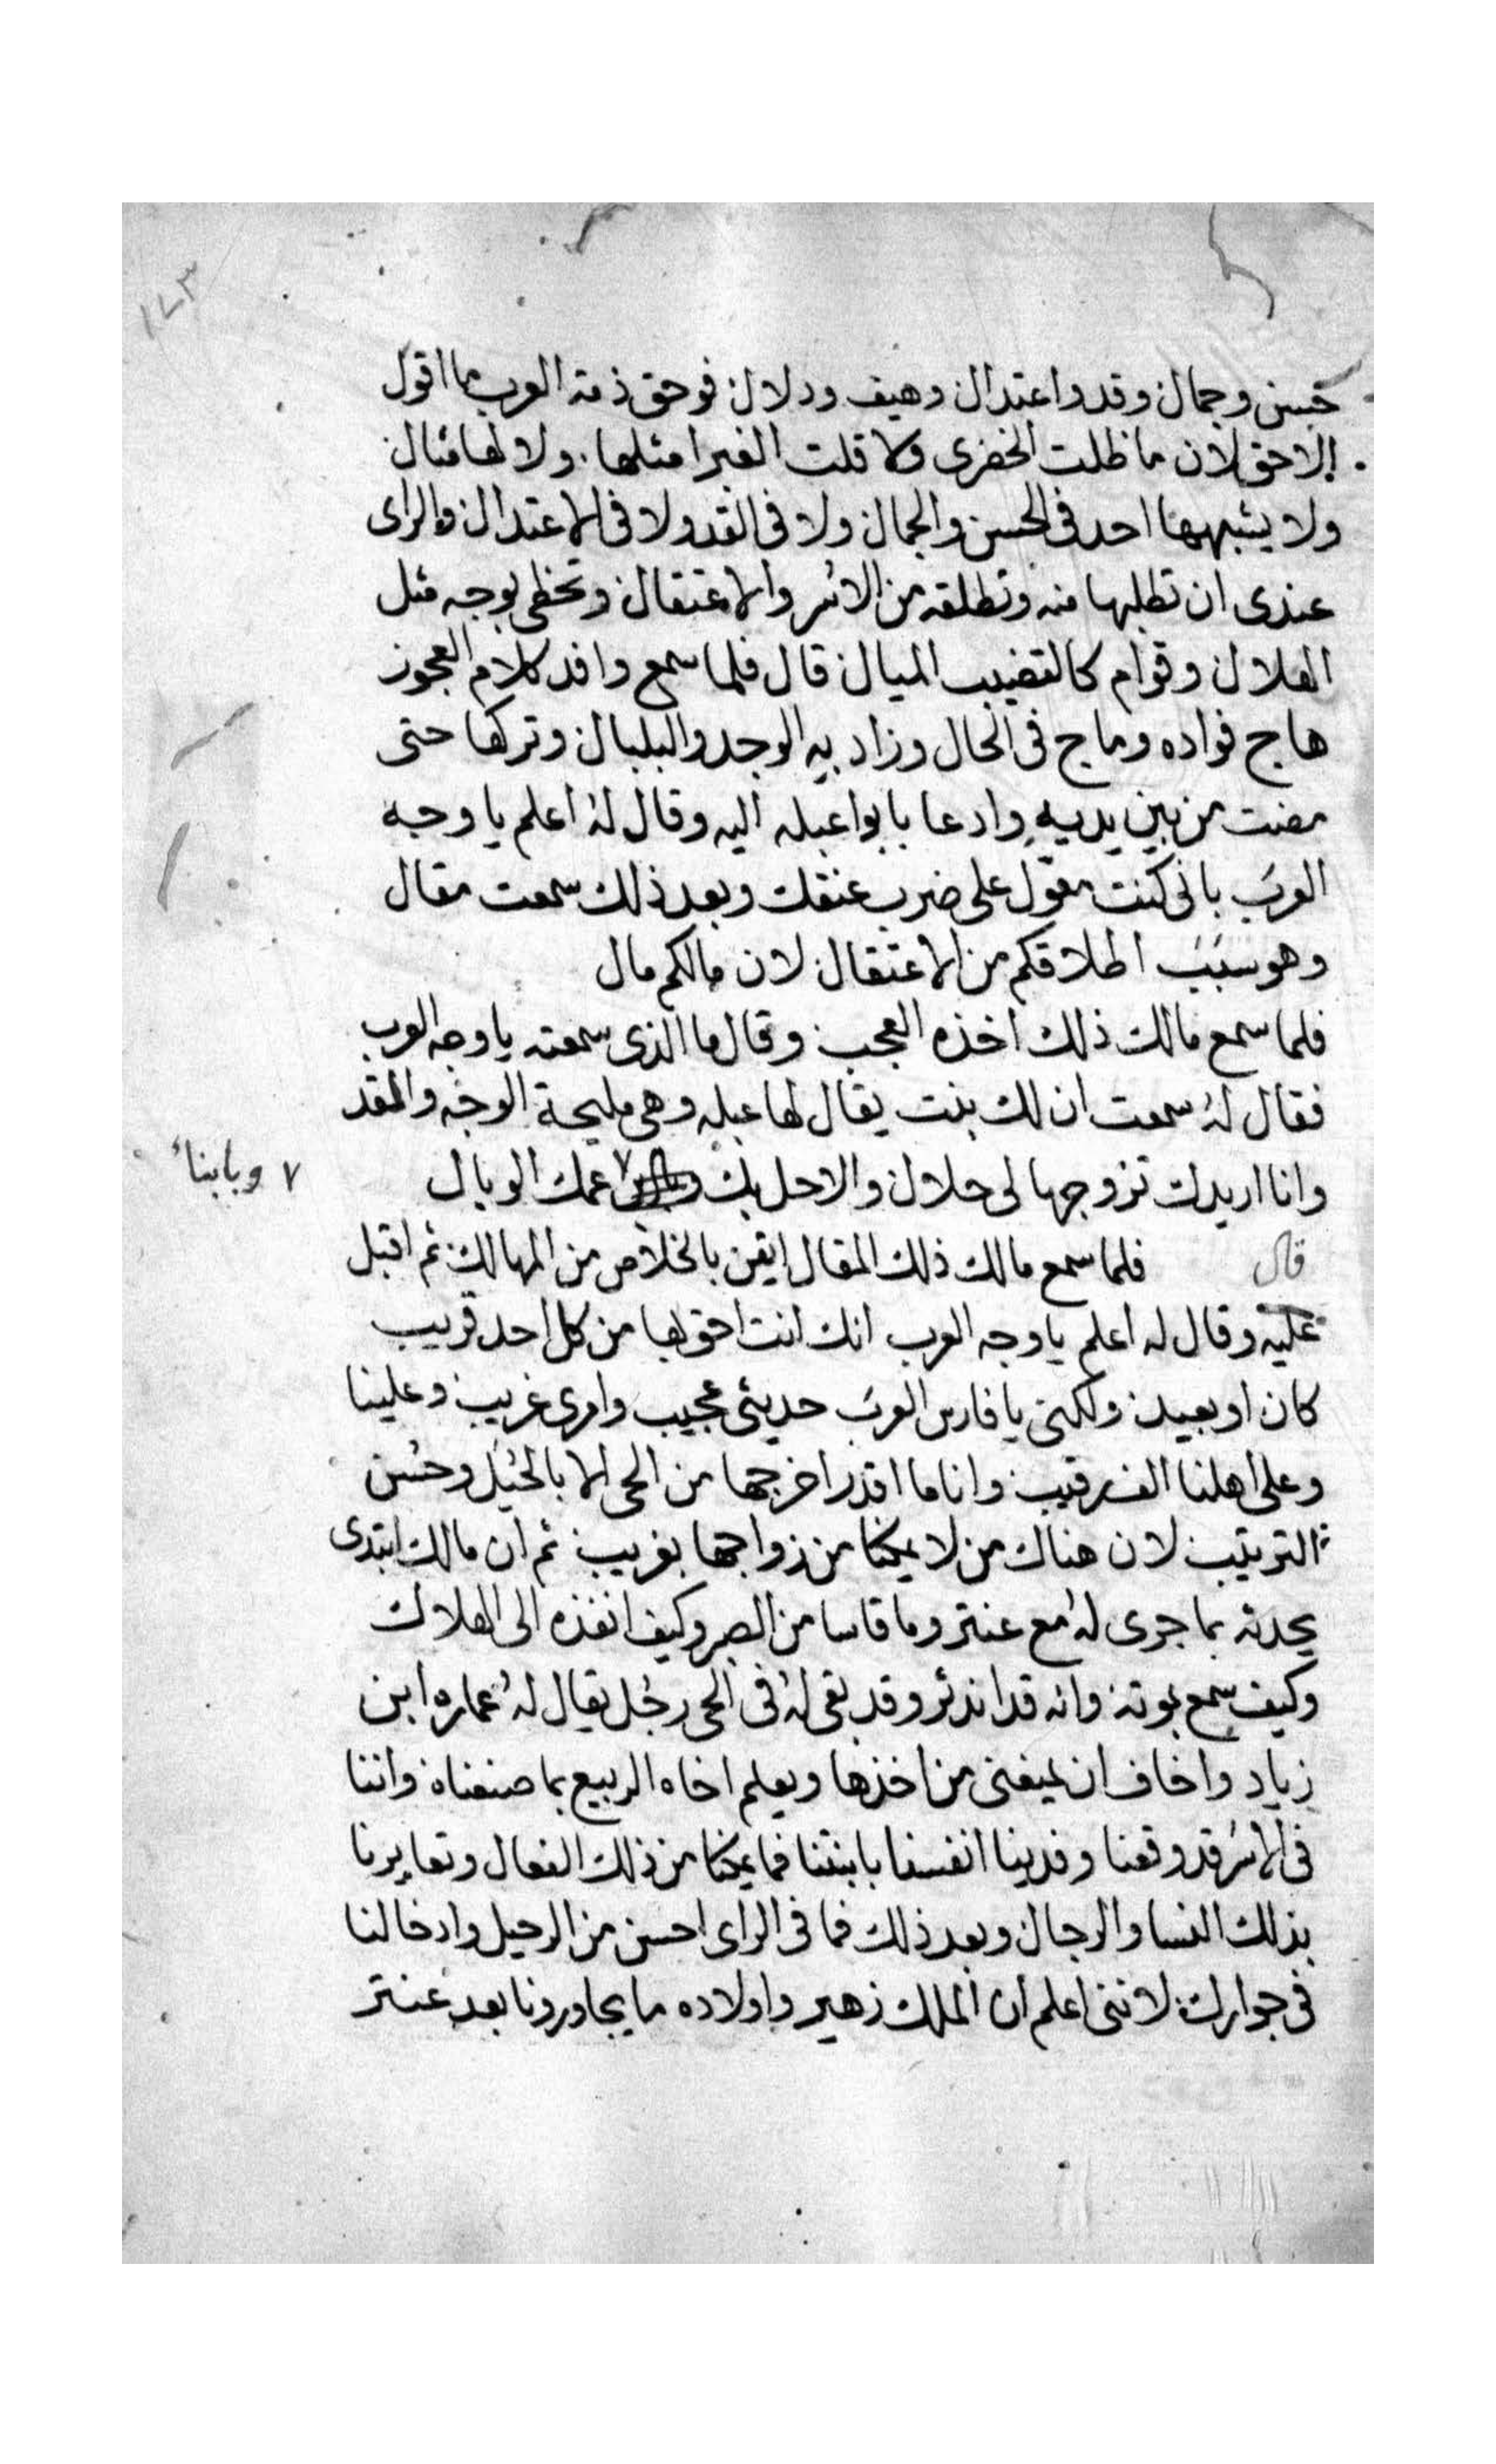 ١٧٣
حسن وجمال وقد واعتدال وهيف ودلال فوحق ذمة العرب ما اقول
الاحق لان ما ظلت الخضرى ولا قلت الغبرا مثلها ولا لها مثال
ولا يشبهها احد فى الحسن والجمال ولا فى القد ولا فى الاعتدال والراى
عندى ان تطلبها منه وتطلقه من الاسر والاعتقال وتحظى بوجه مثل
الهلال وقوام كالقضيب الميال قال فلما سمع وافد كلام العجوز
هاج فواده وماج فى الحال وزاد به الوجد والبلبال وتركها حتى
مضت من بين يديه وادعا بابوا عبله اليه وقال له اعلم يا وجه
العرب بانى كنت معول على ضرب عنقك وبعد ذلك سمعت مقال
وهو سبب اطلاقكم من الاعتقال لان مالكم مال
فلما سمع مالك ذلك اخذه العجب وقال ما الذى سمعته يا وجه العرب
فقال له سمعت ان لك بنت يقال لها عبله وهى مليحة الوجه والقد
وانا اريدك تزوجها لى حلال والا حل بك ٧ عمك الوبال
٧ وبابنا
قال فلما سمع مالك ذلك المقال ايقن بالخلاص من المهالك ثم اقبل
عليه وقال له اعلم يا وجه العرب انك انت احق بها من كل احد قريب
كان او بعيد ولكنى يا فارس العرب حديثى عجيب وامرى غريب وعلينا
وعلى اهلنا الف رقيب وانا ما اقدر اخرجها من الحى الا بالحيل وحسن
الترتيب لان هناك من لا يمكنا من زواجها بغريب ثم ان مالك ابتدى
يحدثه بما جرى له مع عنتر وما قاسا من الصبر وكيف انفذه الى الهلاك
وكيف سمع بموته وانه قد اندثر وقد بقى له فى الحى رجل يقال له عماره ابن
زياد واخاف ان يمنعنى من اخذها ويعلم اخاه الربيع بما صنعناه واننا
فى الاسر قد وقعنا وفدينا انفسنا بابنتنا فما يمكنا من ذلك الفعال وتعايرنا
بذلك النسا والرجال وبعد ذلك فما فى الراى احسن من الرحيل وادخالنا
فى جوارك لاننى اعلم ان الملك زهير واولاده ما يجاورونا بعد عنتر